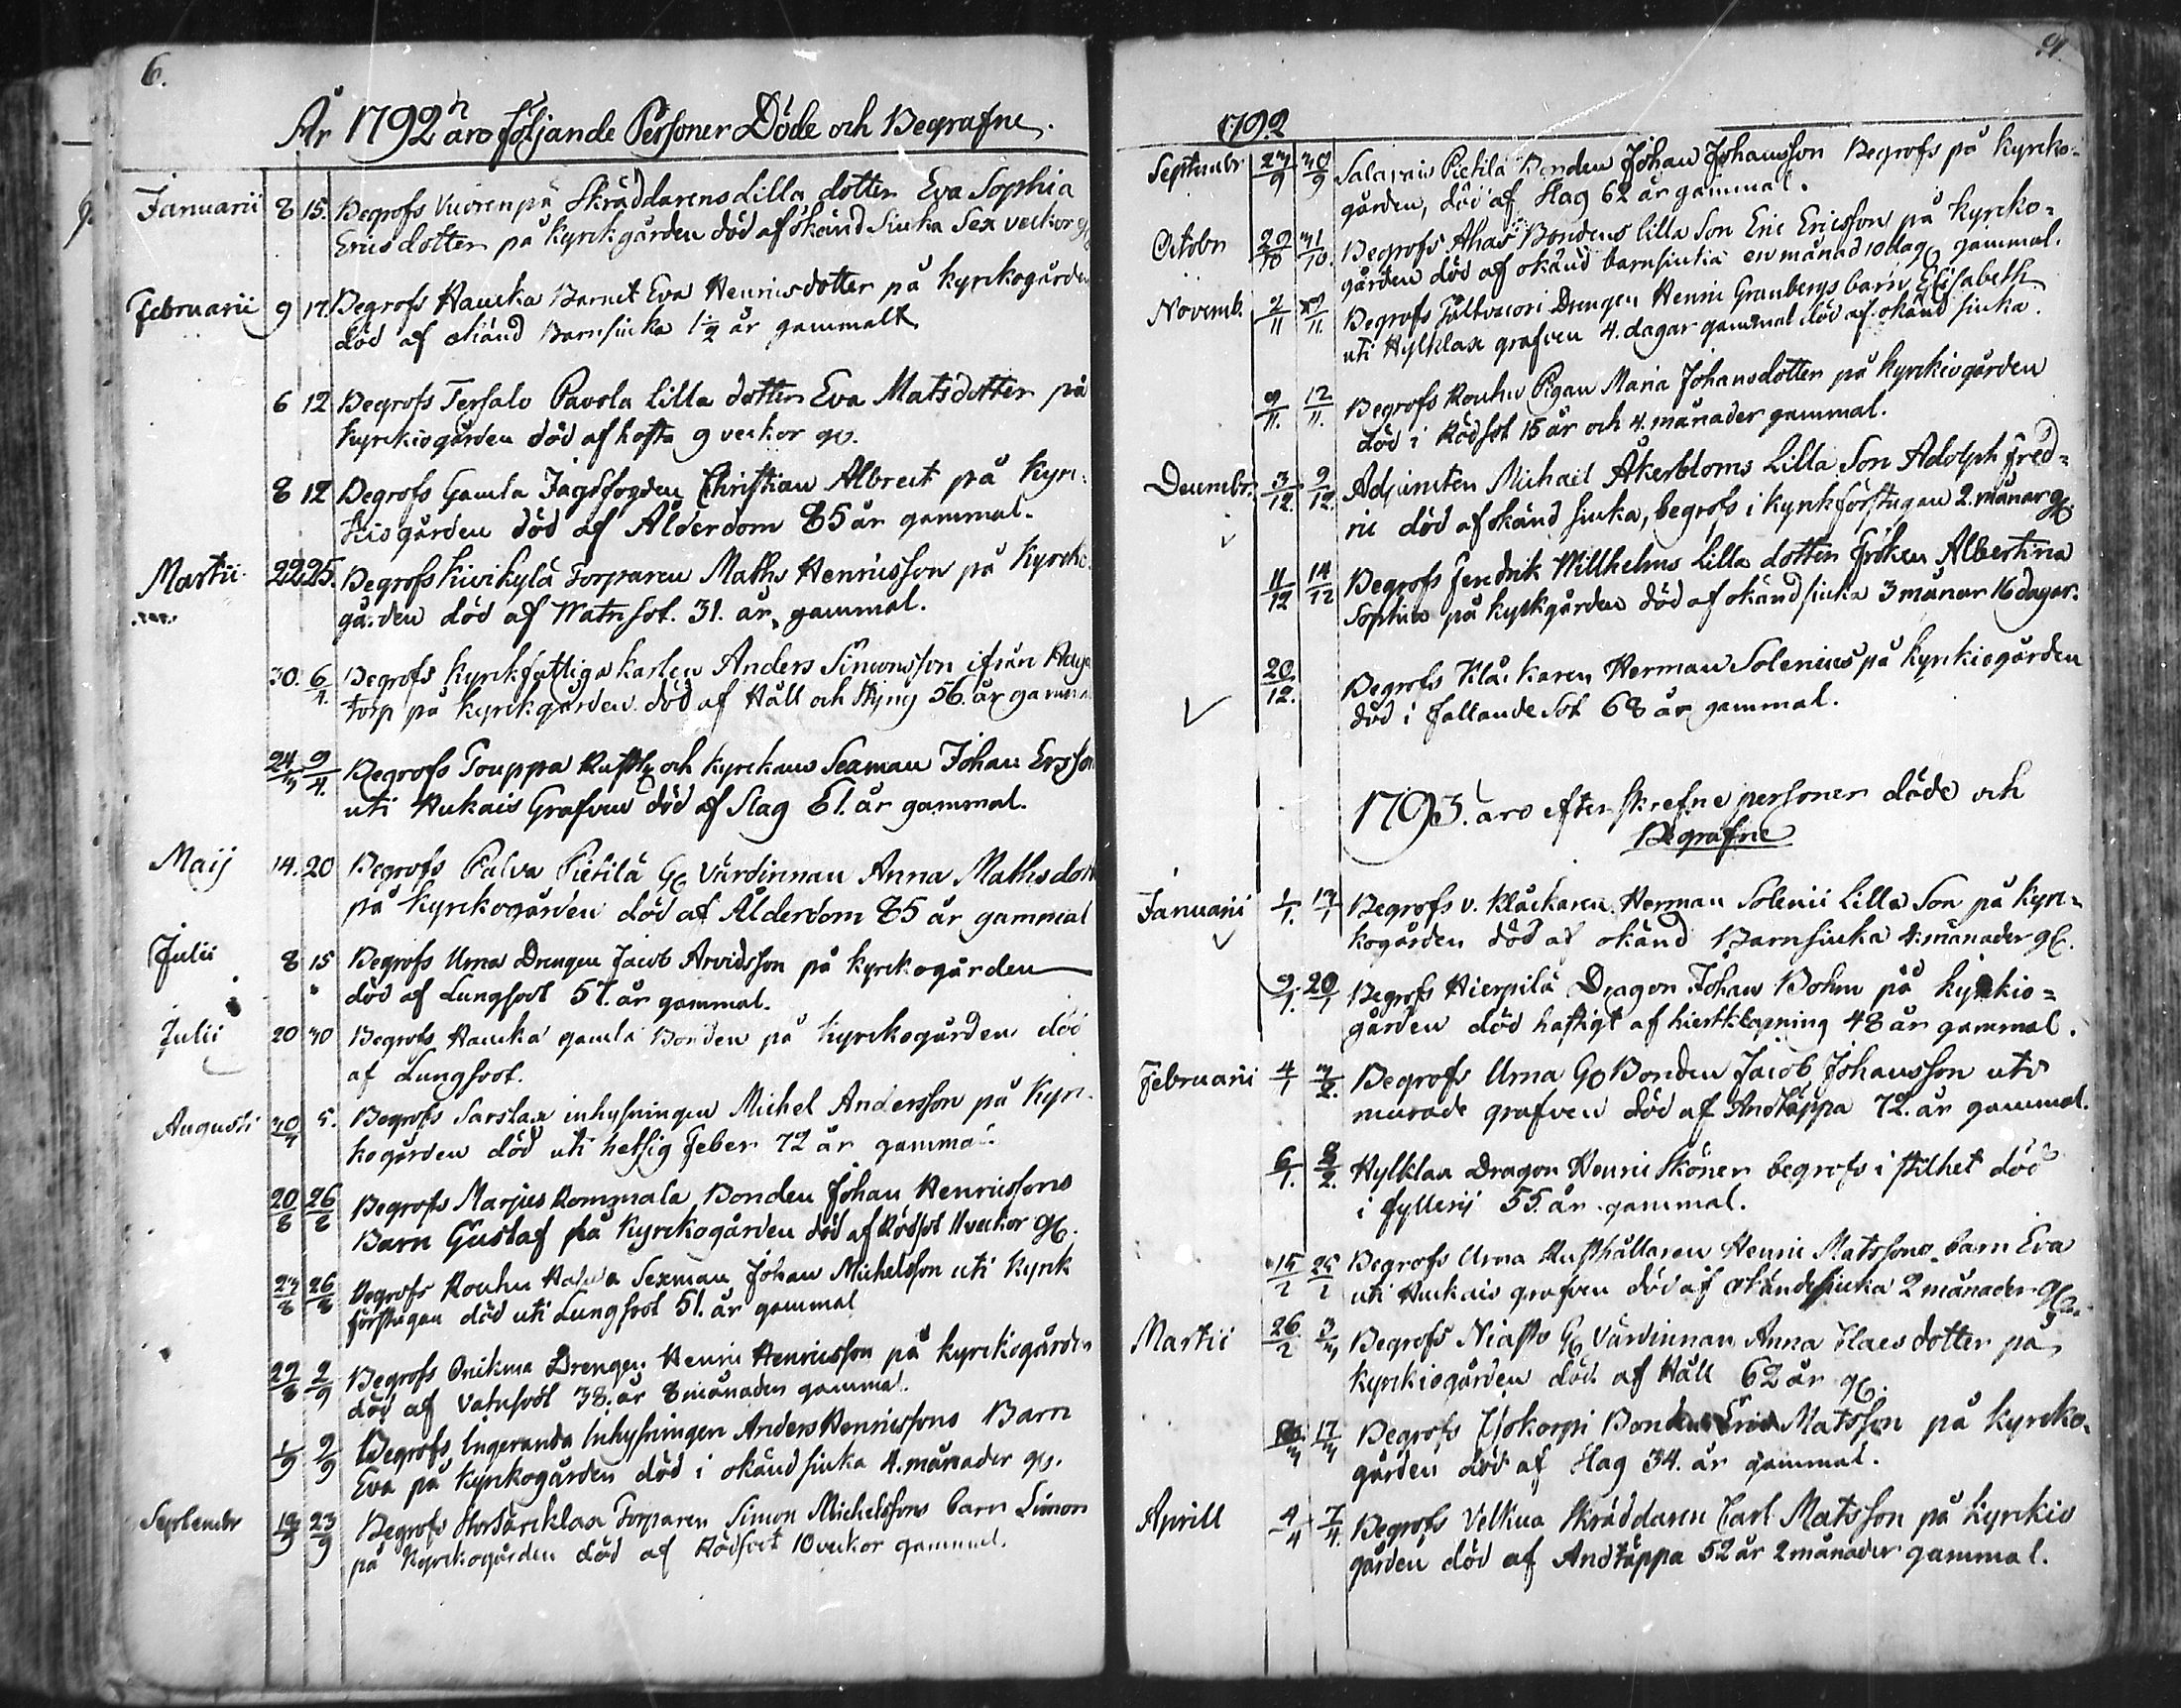 6.
År 1792 äro följande Personer Döde och Begrafne.
Januarii 8 15. Begrofs Vuorenpä Skräddarens Lilla dotter Eva Sophia
Ericsdotter på Kyrckgården död af okänd Siuka Sex veckor gl
Februarii 9 17. Begrofs Haucka Barnet Eva Henricsdotter på Kyrckogården
död af okiänd Barnsiuka 1 1/2 år gammalt.
6 12 Begrofs Tersalo Pavola Lilla dotter Eva Matsdotter på
Kyrckiogården död af hosta 9 veckor gl.
8 12 Begrofs Gamla Jagtfogden Christian Albrect på Kyrc-
kiogården död af Ålderdom 85 år gammal.
Martii 22 25. Begrofs Kivikylä Torparen Maths Henricsson på Kyrcko
gården död af Watnsot. 31. år gammal.
30. 6/4. Begrofs Kyrckfattiga karlen Anders Simonsson ifrån Haga
torp på Kyrckgården död af Håll och Styng 56. år gammal
24/3 9/4. Begrofs Touppa Rusth. och Kyrckans Sexman Johan Ersson
uti Hukais Grafven död af Slag 61. år gammal.
Maij 14. 20 Begrofs Palva Pietilä Gl Värdinnan Anna Mathsdott
på Kyrckogården död af Ålderdom 85 år gammal
Julii 8 15 Begrofs Uma Drengen Jacob Arvidsson på Kyrckogården
död af Lungsoot 57. år gammal.
Julii 20 30 Begrofs Haucka gamla Bonden på Kyrckogården död
af Lungsoot.
Augusti 30/7 5. Begrofs Sarslax inhysningen Michel Andersson på Kyrc-
kogården död uti hetsig Feber 72 år gammal.
20/8 26/8 Begrofs Marjus Rommala Bonden Johan Henricssons
Barn Gustaf på Kyrckogården död af Rödsot 11 veckor gl.
23/8 26/8 Begrofs Rouhu Sexman Johan Michelsson uti Kyrck
förstugan död uti Lungsoot 51. år gammal
29/8 2/9 Begrofs Onikma Drengen Henric Henricsson på Kyrckiogården
död af Vatusoot 38. år 8 månader gammal.
1/9 9/9 Begrofs Ingeranda Inhysningen Anders Henricssons Barn
Eva på Kyrckogården död i okänd siuka 4. månader gl.
Septembr 19/9 23/9 Begrofs Torparen Simon Michelssons barn Simon
på Kyrckogården död af Rödsoot 10 veckor gammal.
1792
Septembr 23/9 30/9 Salavais Pietilä Bonden Johan Johansson Begrofs på Kyrcko-
gården, död af Slag 62 år gammal.
Octobr 29/10 31/10. Begrofs Ahas Bondens lilla Son Eric Ericsson på Kyrcko-
gården död af okänd barnsiukia en månad 10 dag gammal.
Novemb. 2/11 /11. Begrofs Drengen Henric Granbergs barn Elisabeth
uti Hylklax grafven 4. dagar gammal död af okänd siuka.
9/11. 12/11. Begrofs Rouhu Pigan Maria Johansdotter på Kyrckiogården
död i Rödsot 15 år och 4. månader gammal.
Decembr. 3/12. 9/12. Adjuncten Michael Åkerbloms Lilla Son Adolph Fred-
ric död af okänd siuka, begrofs i Kyrckförstugan 2. månar gl.
11/12 14/12 Begrofs Fendrik Willhelms Lilla dotter Fröken Albertina
Sophia på Kyrkgården död af okänd siuka 3 månar 16 dagar.
20/12. Begrofs Klåckaren Herman Solenius på Kyrckiogården
död i fallande Sot 68 år gammal.
1793. äro efterskrefne personer döde och
Begrafne
Januarii 1/1. 13/1 Begrofs v. Klåckaren Herman Solenii Lilla Son på Kyrc-
kogården död af okänd Barnsiuka 4. månader gl.
9/1. 20/1 Begrofs Hierpilä Dragon Johan Bohm på Kyrckio-
gården död hastigt af hiertklapning 48 år gammal.
Februarii 4/1 3/2. Begrofs Uma Gl Bonden Jacob Johansson uti
murade grafven död af Andtäppa 72. år gammal.
6/1. 8/2. Hylklax Dragon Henric Sköner begrofs i stilhet död
i fyllerij 55. år gammal.
15/2 25/2 Begrofs Uma Rusthållaren Henric Matssons barn Eva
uti Huckais grafven död af okänd siuka 2 månader gl.
Martii 26/2 3/3 Begrofs Gl Värdinnan Anna Claesdotter på
Kyrckiogården död af Håll 62 år gl.
17/3 Begrofs Bonden Eric Matsson på Kyrcko-
gården död af Slag 34. år gammal.
Aprill 4/4 7/4. Begrofs Velkua Skräddaren Carl Matsson på Kyrckio
gården död af Andtäppa 52 år 2 månader gammal.